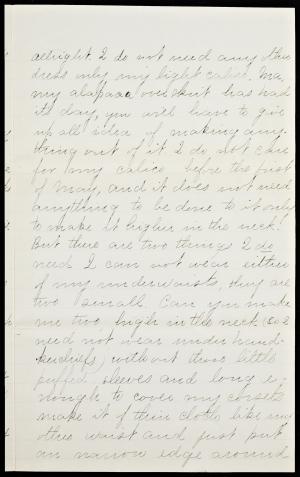 allright. I do not need any other
dress only my light calico. Ma,
my alapaca overskirt has had
its day, you will have to give
up all idea of making any-
thing out of it. I do not care
for my calico before the first
of May, and it does not need
anything to be done to it only
to make it higher in the neck!
But there are two things I do
need I can not wear either
of my underwaists, they are
two small. Can you make
me two, high in the neck (so I
need not wear under hand-
kerchiefs) without those little
puffed sleeves and long e-
nough to cover my corsets
make it of thin cloth like my
other waist and just put
an narrow edge around